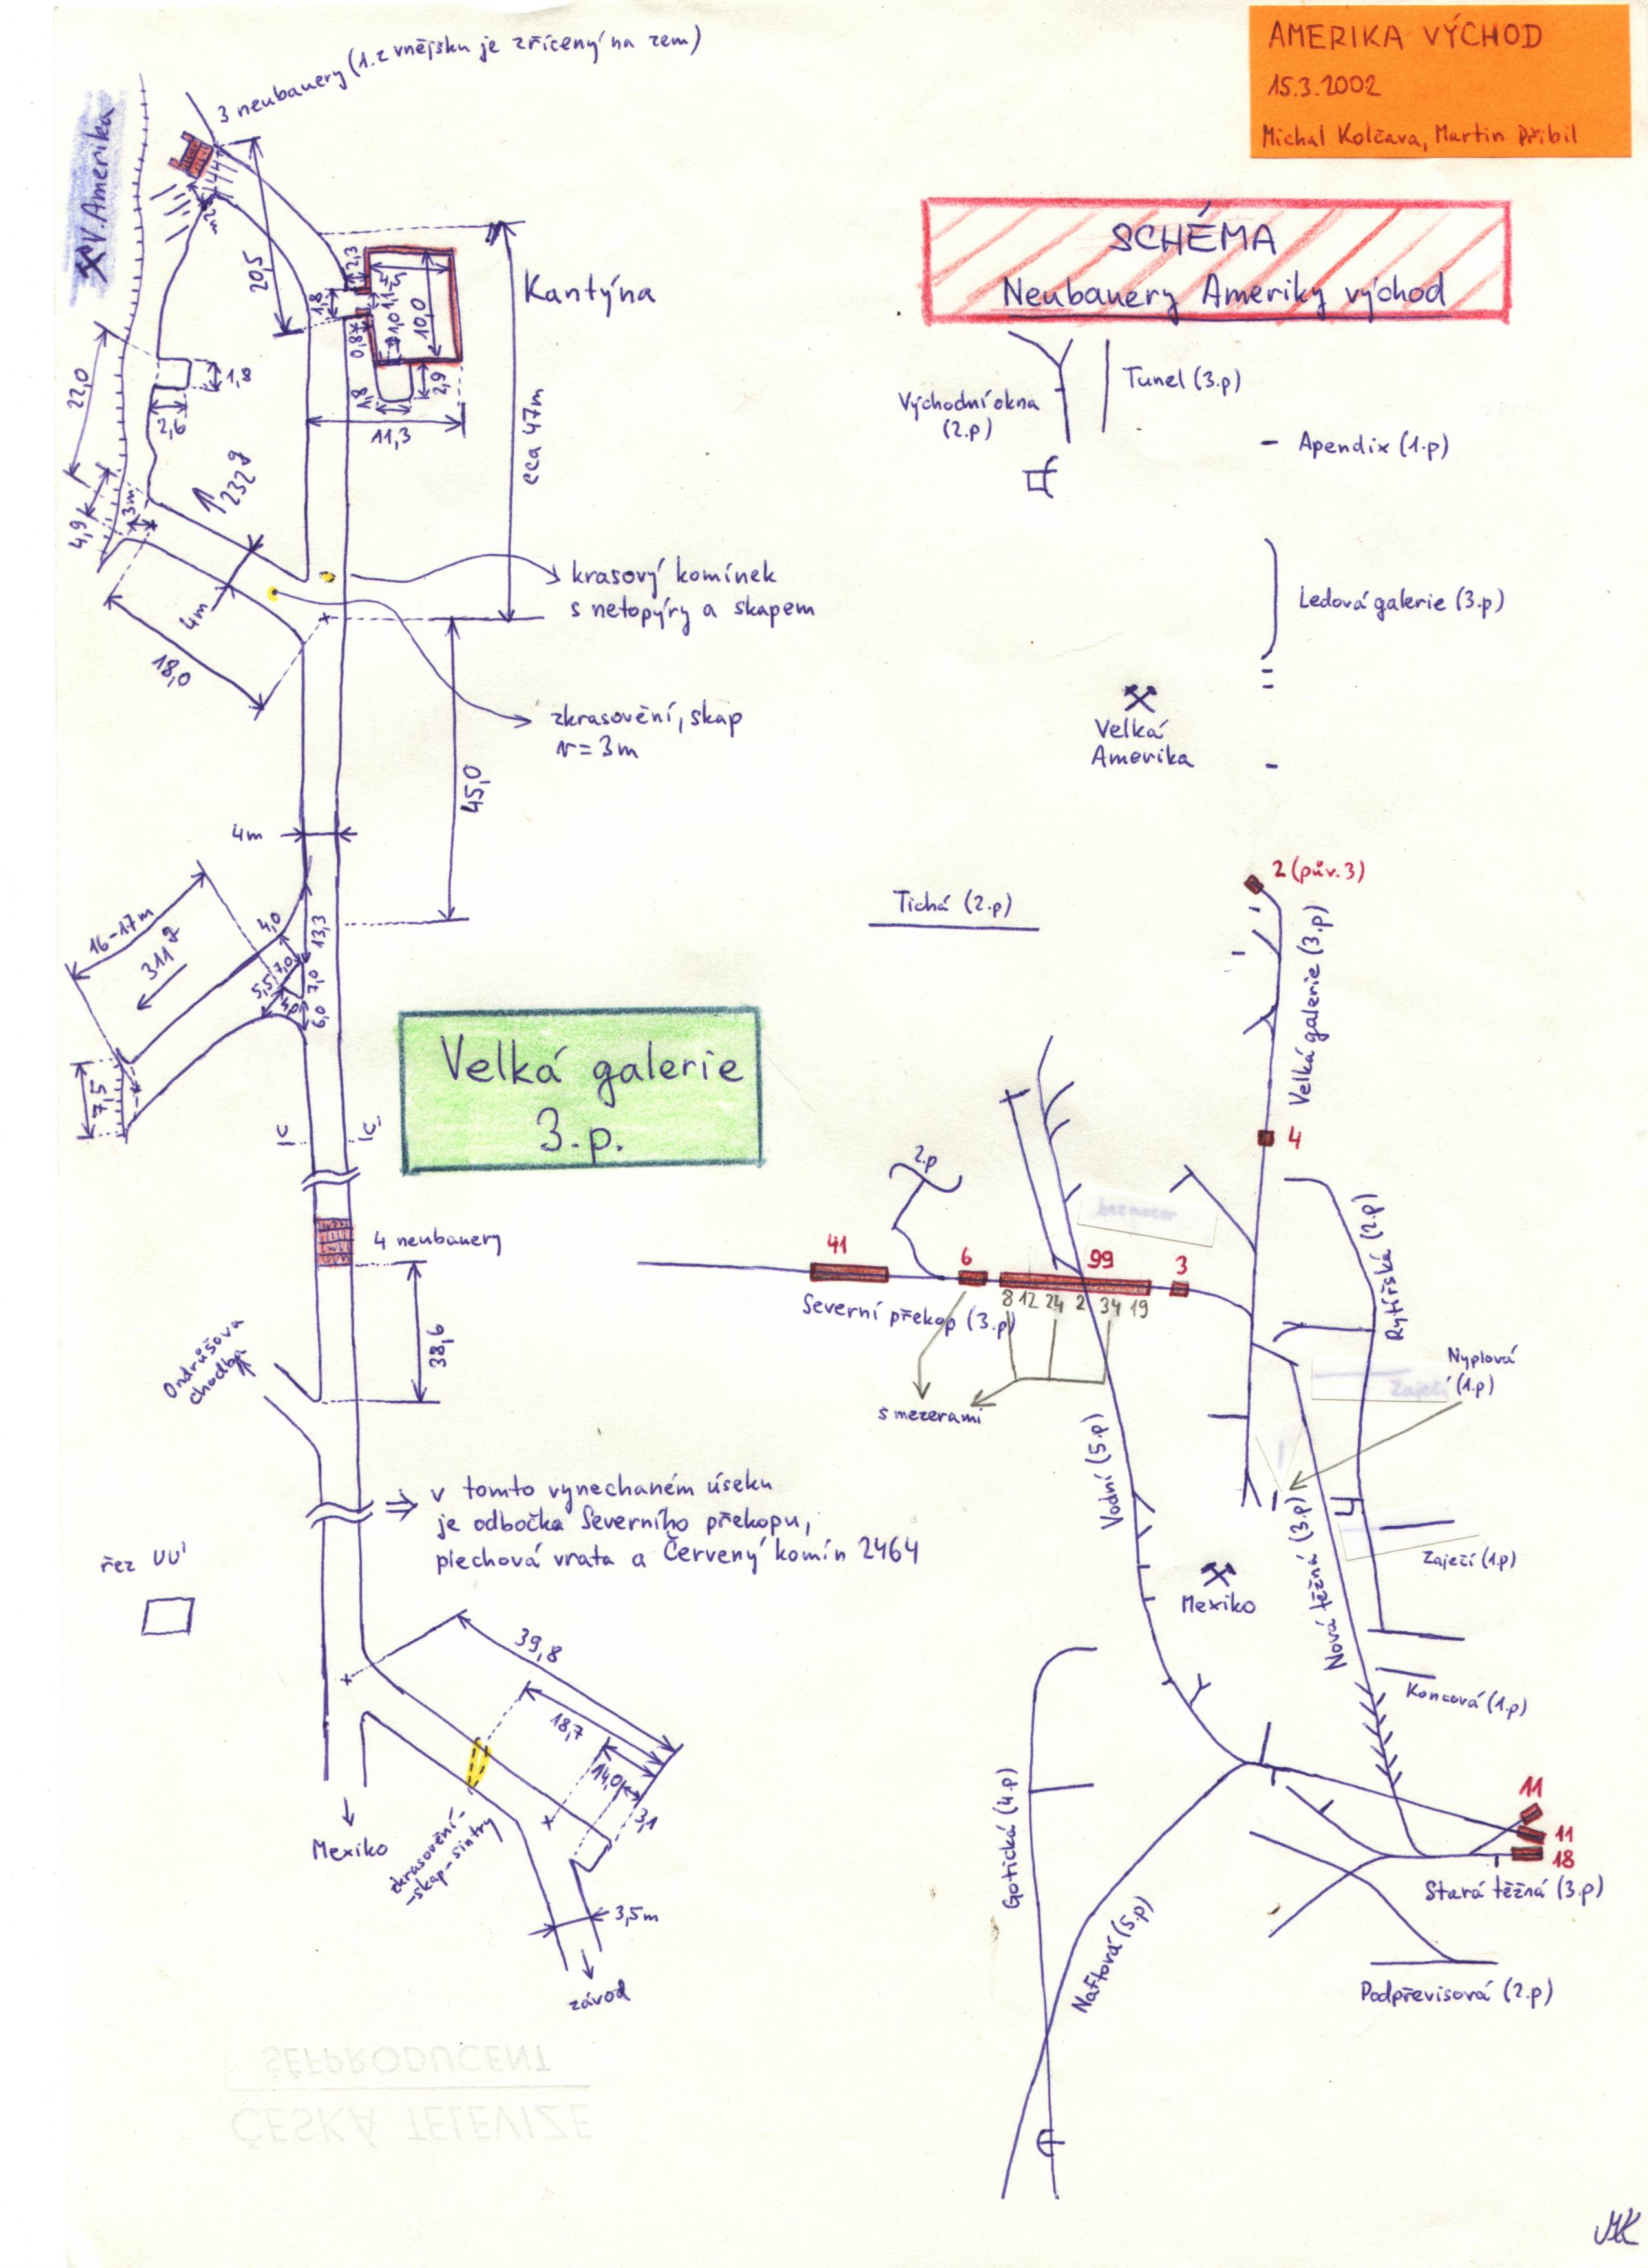 AMERIKA VÝCHOD
15.3.2002
Michal Kolčava, Martin Přibil
3 neubauery (1. z vnějsku je zřícený na zem)
V. Amerika
SCHÉMA
Neubauery Ameriky východ
20,5
2m
2,3
1,8
0,8
1,0
1,1
10,0
1,8
2,9
11,3
Kantýna
cca 47m
22,0
1,8
2,6
232
4,9
3m
4m
18,0
krasový komínek
s netopýry a skapem
zkrasovění, skap
v = 3m
45,0
4m
16-17m
311
4,0
13,3
7,0
7,0
5,5
4,0
6,0
7,5
Velká galerie
3.p.
4 neubauery
38,6
Ondrůšova
chodba
⇒ v tomto vynechaném úseku
je odbočka Severního překopu,
plechová vrata a Červený komín 2464
řez UU'
39,8
18,7
14,0
3,1
zkrasovění-
-skap-sintry
Mexiko
3,5m
závod
ŠÉFPRODUCENT
ČESKÁ TELEVIZE
Východní okna
(2.p)
Tunel (3.p)
Apendix (1.p)
Ledová galerie (3.p)
Velká
Amerika
Tichá (2.p)
2 (pův. 3)
Velká galerie (3.p)
4
2.p
41
6
99
3
8 12 24 2 34 19
Severní překop (3.p)
s mezerami
Rytířská (2.p)
Nyplová
(1.p)
Zaječí
Vodní (5.p)
Nová těžná (3.p)
Zaječí (1.p)
Mexiko
Koncová (1.p)
Gotická (4.p)
11
11
18
Stará těžná (3.p)
Naftová (5.p)
Podpřevisová (2.p)
MK